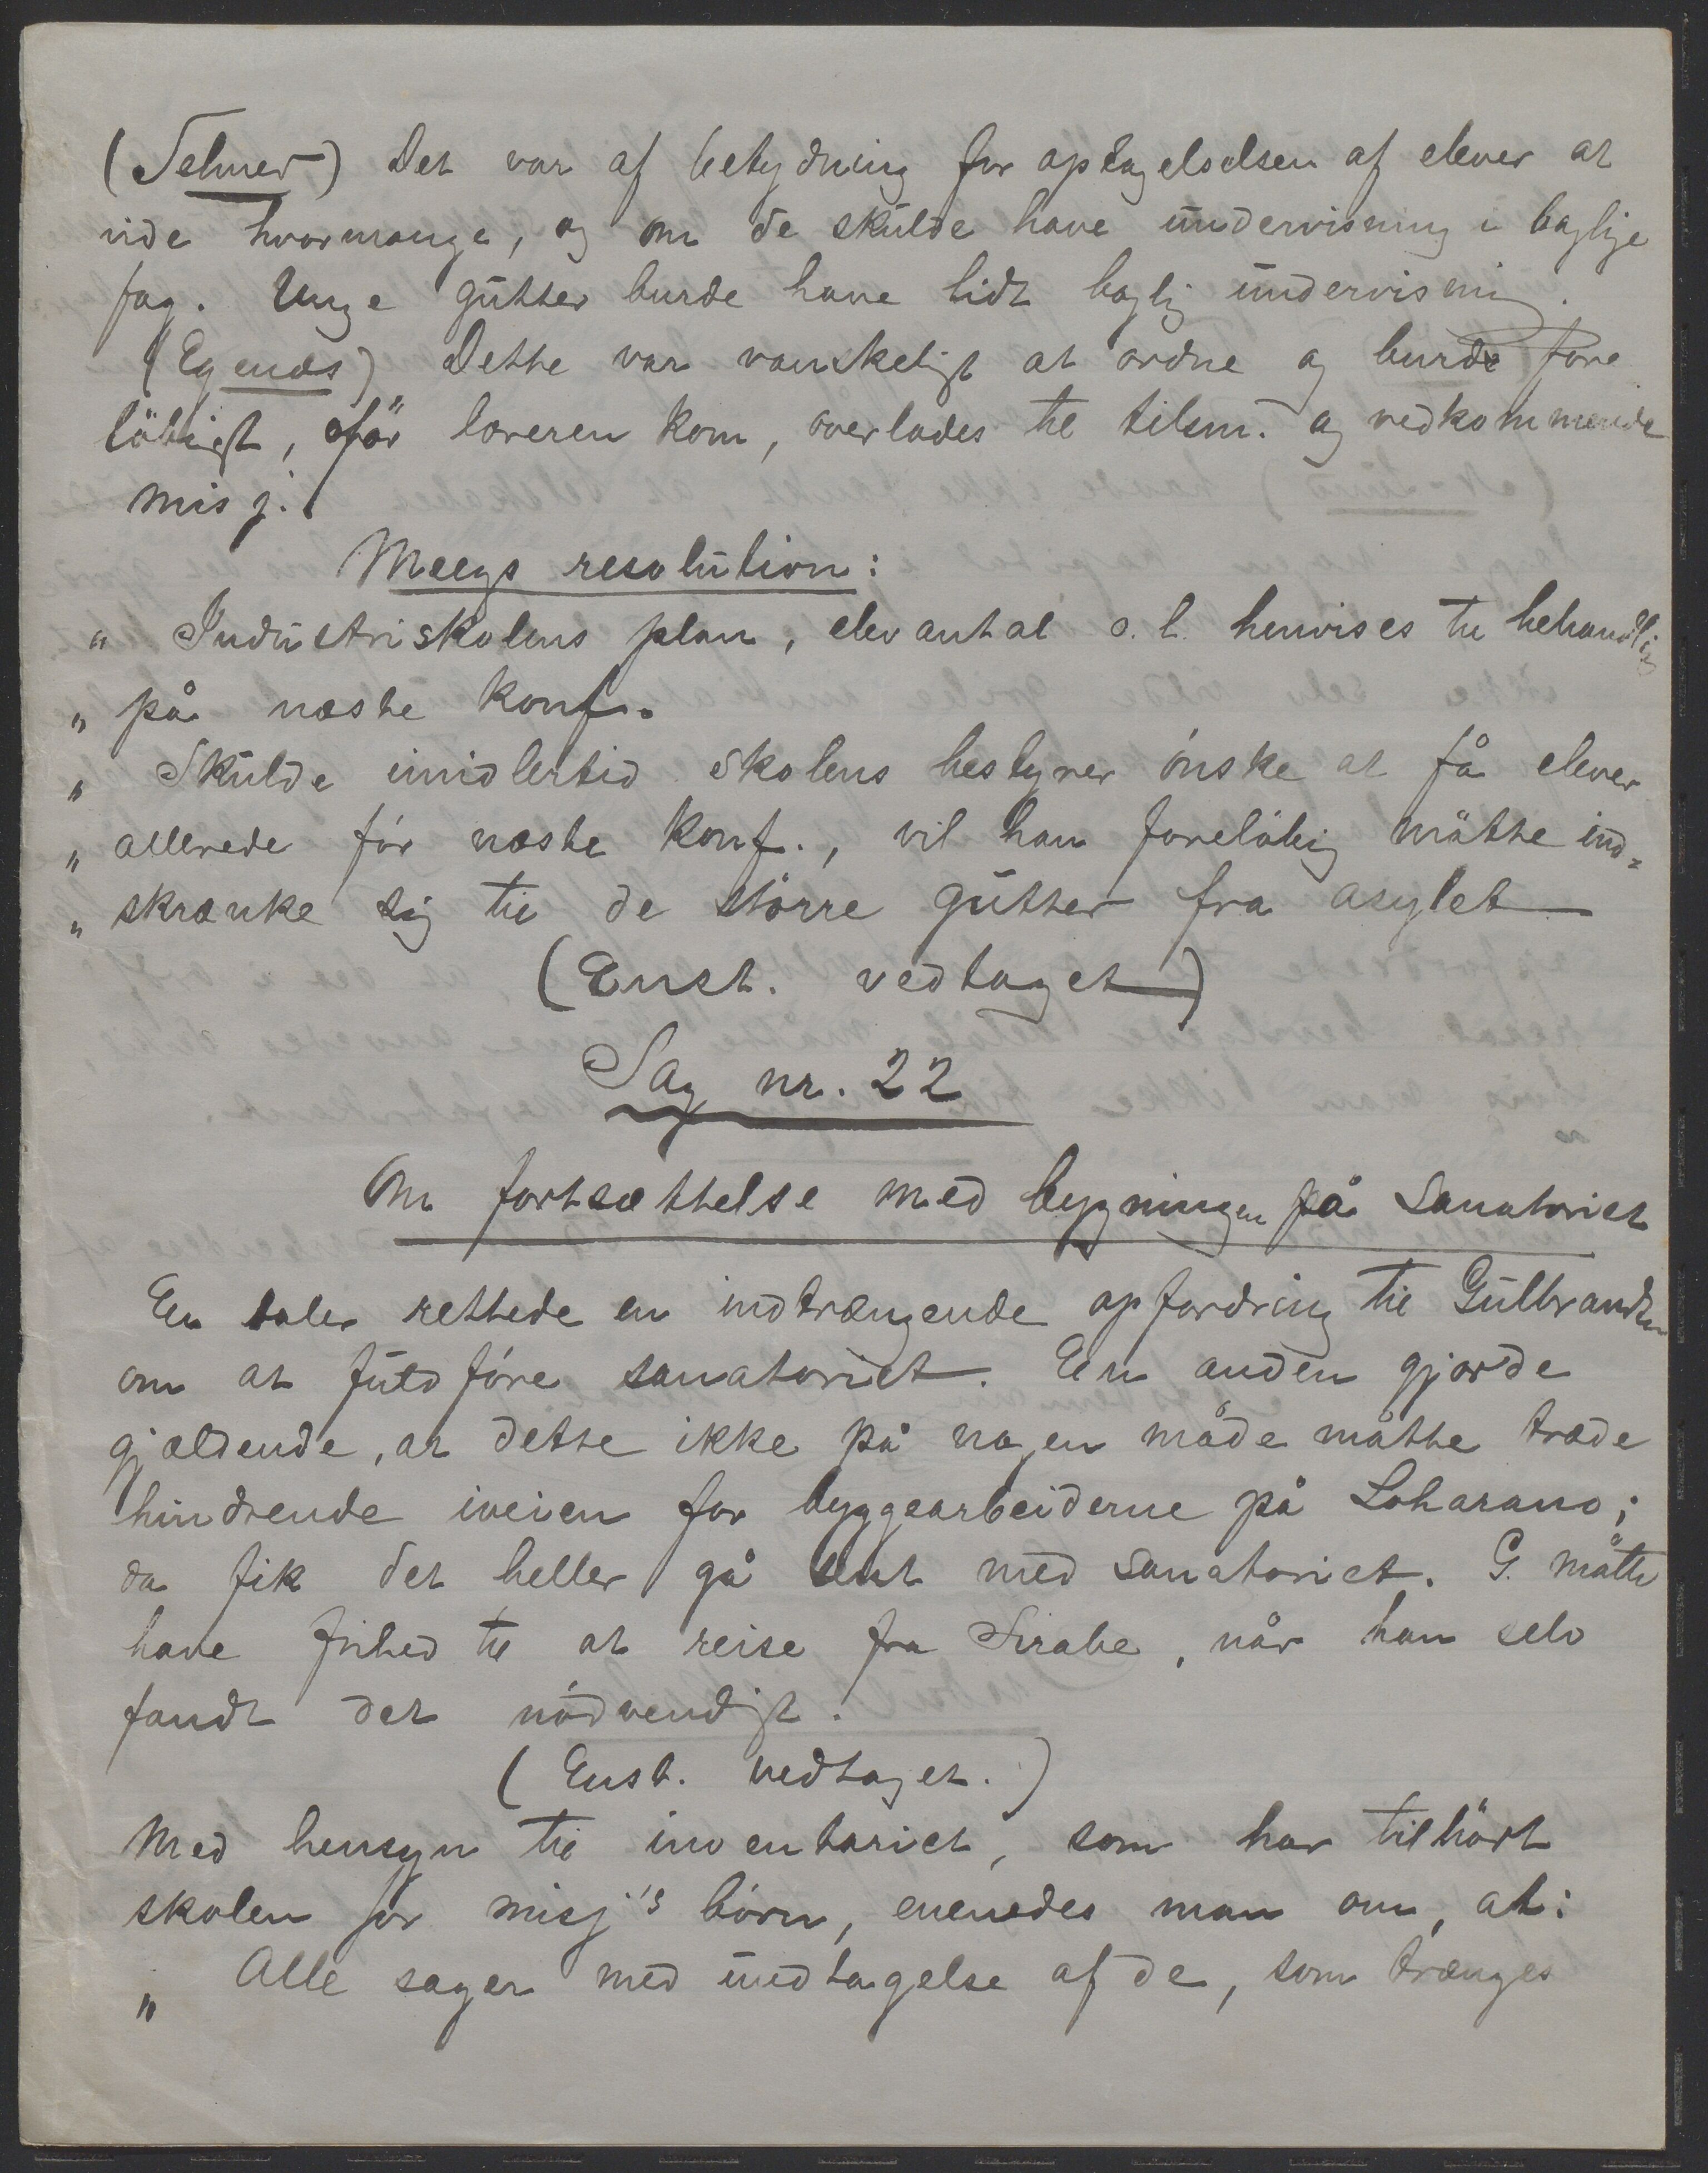 (Selmer) Det var af betydning for optagelselsen af elever at
vide hvormange, og om de skulde have undervisning i boglige
fag. Unge gutter burde have lidt boglig undervisning.
(Egenæs) Dette var vanskeligt at ordne og burde fore
löbigt, för læreren kom, overlades til tilsm. og vedkommende
misj.
Meegs resolution:
" Industriskolens plan, elevantal o. l. henvises til behandling
" på næste konf.
" Skulde imidlertid skolens bestyrer ónske at få elever
" allerede fór næste konf., vil han forelöbig måtte ind-
" skrænke sig til de större gutter fra asylet
(Enst. vedtaget)
Sag nr. 22
Om fortsættelse med bygningen på Sanatoriet
En taler rettede en indtrængende opfordring til Gulbrandsen
om at fuldfóre sanatoriet. En anden gjorde
gjældende, at dette ikke på nogen måde måtte træde
hindrende iveien for byggearbeiderne på Loharano;
da fik det heller gå sent med sanatoriet. G. måtte
have frihed til at reise fra Sirabe, når han selv
fandt det nódvendigt.
(Enst. vedtaget.)
Med hensyn til inventariet, som har tilhört
skolen for misj's börn, enenedes man om, at:
" Alle sager med undtagelse af de, som trænges